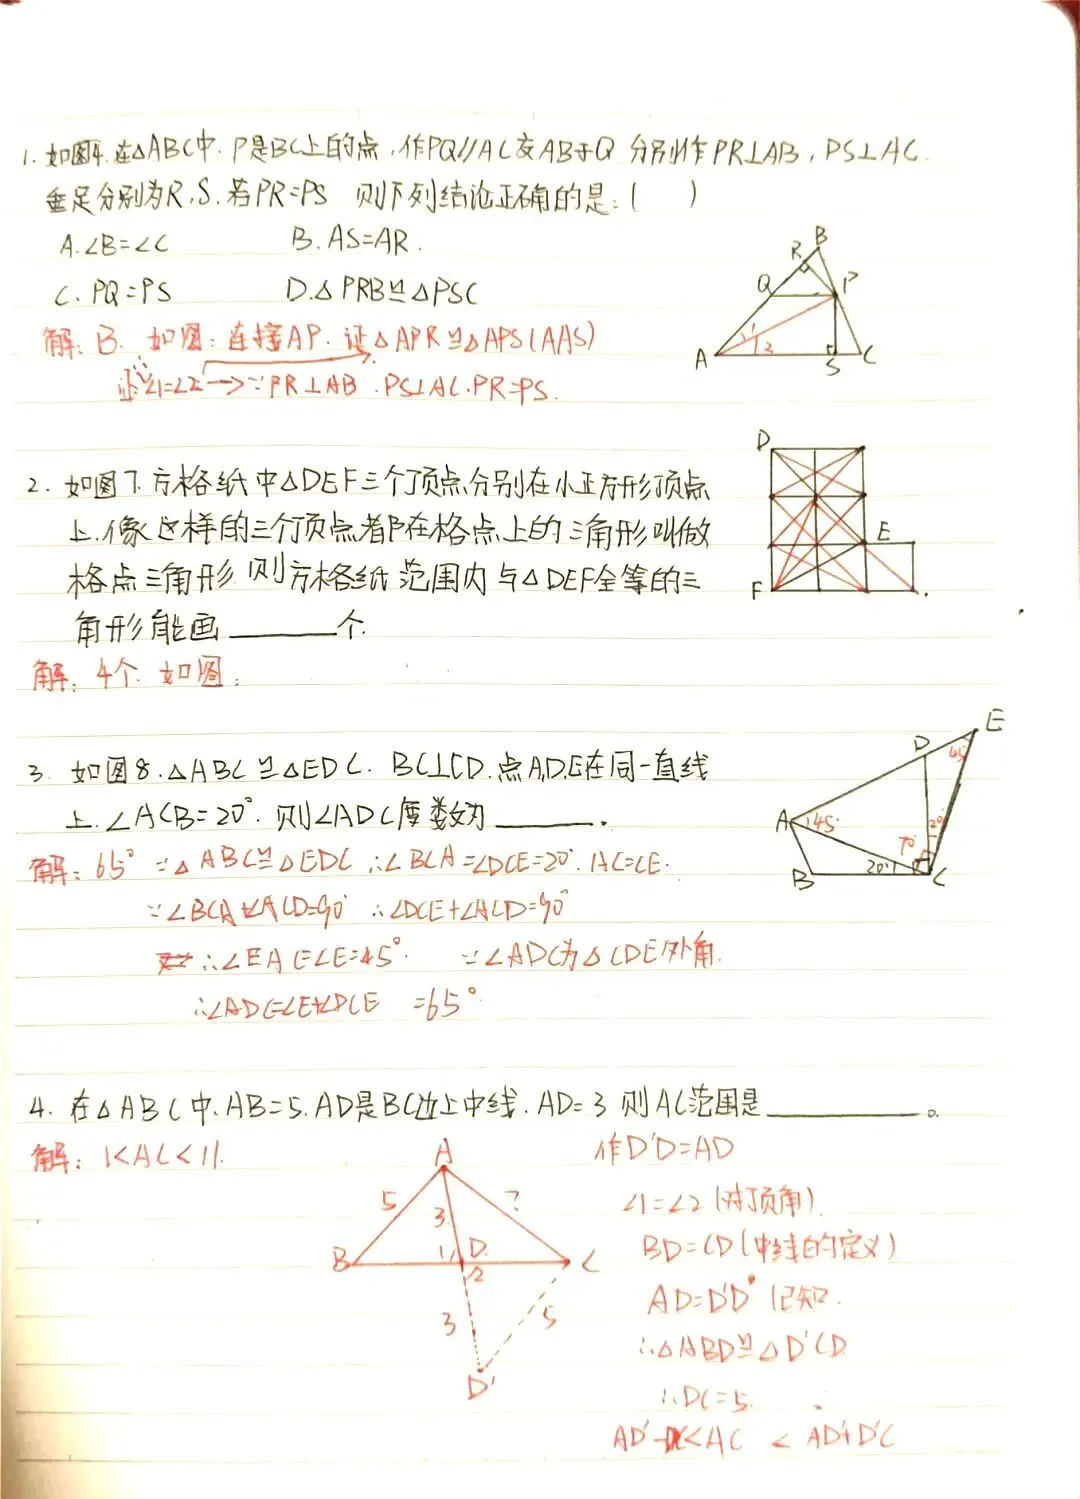 1. 如图4.在△ABC中.P是BC上的点,作PQ//AC交AB于Q 分别作PR⊥AB,PS⊥AC.
垂足分别为R,S.若PR=PS 则下列结论正确的是:( )
A.∠B=∠C B.AS=AR.
C.PQ=PS D.△PRB≌△PSC
解:B. 如图:连接AP.证△APR≌△APS(AAS)
证∠1=∠2 → ∵PR⊥AB.PS⊥AC.PR=PS.
B
R
Q
P
A
1
2
S
C
2. 如图7.方格纸中△DEF三个顶点分别在小正方形顶点
上.像这样的三个顶点都在格点上的三角形叫做
格点三角形.则方格纸范围内与△DEF全等的三
角形能画______个.
解:4个.如图:
D
E
F
3. 如图8.△ABC≌△EDC. BC⊥CD.点A,D,E在同一直线
上.∠ACB=20°.则∠ADC度数为______.
解:65° ∵△ABC≌△EDC ∴∠BCA=∠DCE=20°.AC=CE.
∵∠BCA+∠ACD=90° ∴∠DCE+∠ACD=90°
∴∠EAC=∠E=45°. ∵∠ADC为△CDE外角.
∴∠ADC=∠E+∠DCE =65°
E
45°
D
A
45°
20°
70°
B
20°
C
4. 在△ABC中.AB=5.AD是BC边上中线.AD=3 则AC范围是______。
解:1<AC<11.
A
5
3
?
B
1
D
2
C
3
5
D'
作D'D=AD
∠1=∠2(对顶角).
BD=CD(中线的定义)
AD=D'D 已知.
∴△ABD≌△D'CD
∴D'C=5.
AD'-D'C<AC < AD'+D'C